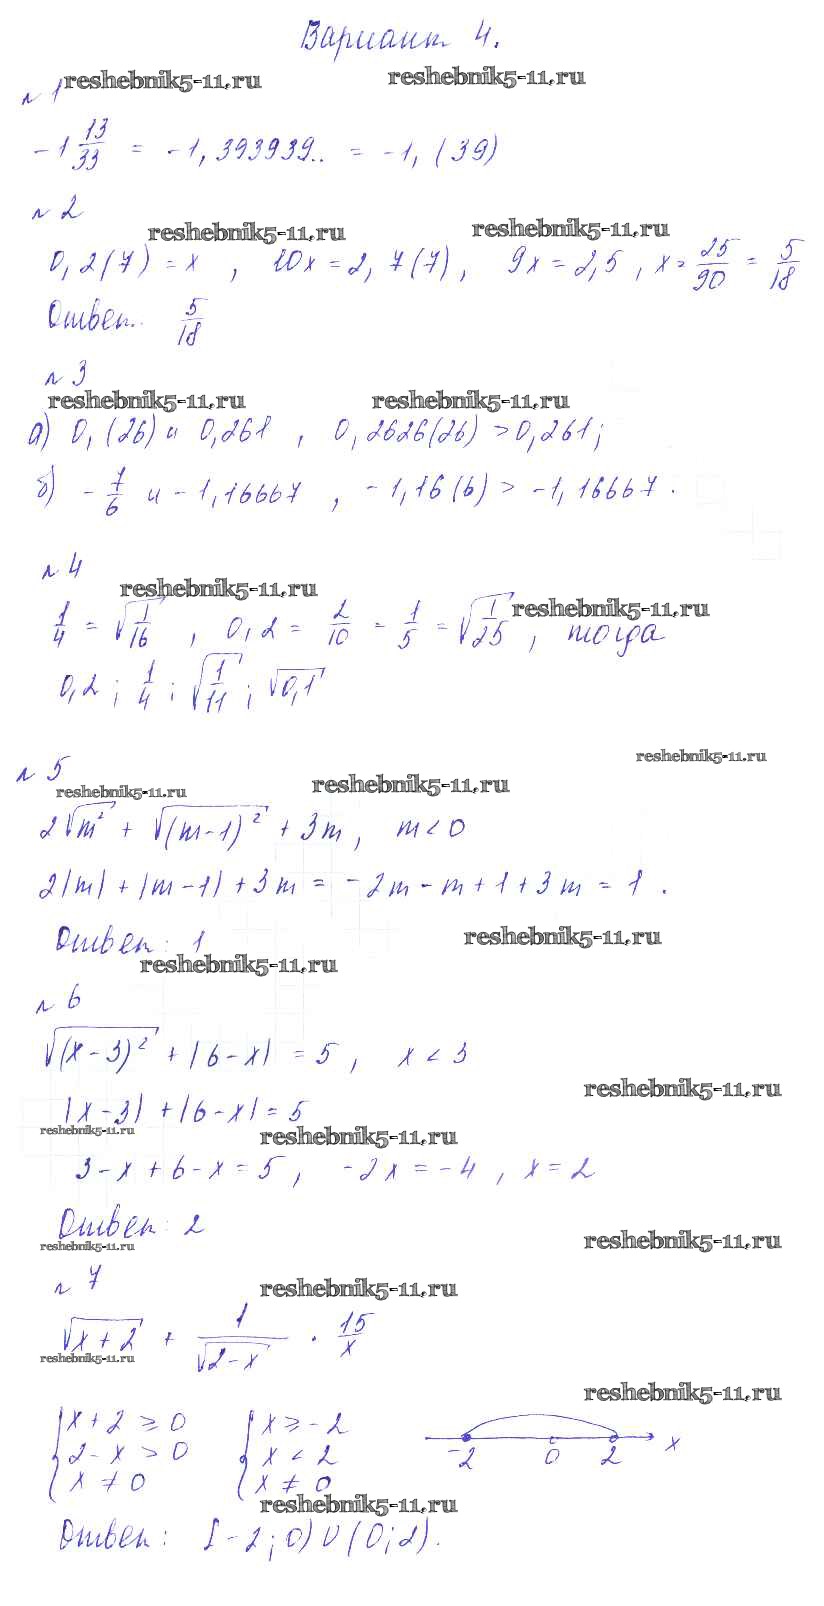 Вариант 4.
reshebnik5-11.ru reshebnik5-11.ru
№ 1
-1 13/33 = -1,393939.. = -1,(39)
№ 2
reshebnik5-11.ru reshebnik5-11.ru
0,2(7) = x , 10x = 2,7(7), 9x = 2,5 , x = 25/90 = 5/18
Ответ.. 5/18
№ 3
reshebnik5-11.ru reshebnik5-11.ru
а) 0,(26) и 0,261 , 0,2626(26) > 0,261;
б) -7/6 и -1,16667 , -1,16(6) > -1,16667.
№ 4
reshebnik5-11.ru reshebnik5-11.ru
1/4 = √(1/16) , 0,2 = 2/10 = 1/5 = √(1/25) , тогда
0,2 ; 1/4 ; √(1/11) ; √0,1
reshebnik5-11.ru
№ 5
reshebnik5-11.ru reshebnik5-11.ru
2√m² + √(m-1)² + 3m, m < 0
2|m| + |m-1| + 3m = -2m - m + 1 + 3m = 1 .
Ответ: 1 reshebnik5-11.ru
reshebnik5-11.ru
№ 6
√(x-3)² + |6-x| = 5, x < 3
reshebnik5-11.ru
|x-3| + |6-x| = 5
reshebnik5-11.ru reshebnik5-11.ru
3-x+6-x = 5, -2x = -4 , x = 2
Ответ: 2
reshebnik5-11.ru reshebnik5-11.ru
№ 7
reshebnik5-11.ru
√x+2 + 1/√2-x · 15/x
reshebnik5-11.ru
reshebnik5-11.ru
{ x+2 ≥ 0 { x ≥ -2
2-x > 0 x < 2 -2 0 2 x
x ≠ 0 x ≠ 0
reshebnik5-11.ru
Ответ: [-2;0) ∪ (0;2).